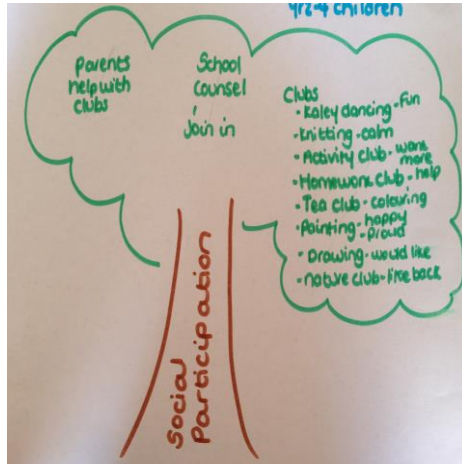 yrs-4 children
parents
help with
clubs
School
counsel
Join in
Clubs
• Kaley dancing - fun
• Knitting - calm
• Activity club - want
more
• Homework club - help
• Tea club - colouring
• Painting - happy
- proud
• Drawing - would like
• nature club - like back
Social
Participation